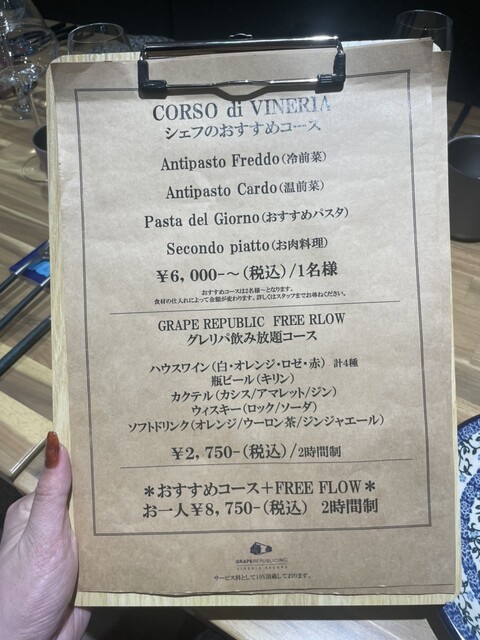 CORSO di VINERIA
シェフのおすすめコース
Antipasto Freddo(冷前菜)
Antipasto Cardo(温前菜)
Pasta del Giorno(おすすめパスタ)
Secondo piatto(お肉料理)
¥6,000-~(税込)/1名様
おすすめコースは2名様～となります。
食材の仕入れによって金額が変わります。詳しくはスタッフまでお尋ねください。
GRAPE REPUBLIC FREE RLOW
グレリパ飲み放題コース
ハウスワイン(白・オレンジ・ロゼ・赤) 計4種
瓶ビール(キリン)
カクテル(カシス/アマレット/ジン)
ウィスキー(ロック/ソーダ)
ソフトドリンク(オレンジ/ウーロン茶/ジンジャエール)
¥2,750-(税込)/2時間制
*おすすめコース+FREE FLOW*
お一人¥8,750-(税込) 2時間制
GRAPEREPUBLICINC.
サービス料として10%頂戴しております。